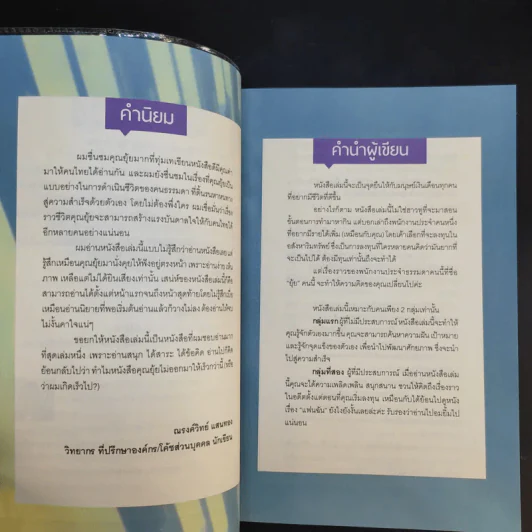 คำนิยม
ผมชื่นชมคุณยุ้ยมากที่ทุ่มเทเขียนหนังสือดีมีคุณค่า
มาให้คนไทยได้อ่านกัน และผมยังชื่นชมในเรื่องที่คุณยุ้ยเป็น
แบบอย่างในการดำเนินชีวิตของคนธรรมดา ที่ดิ้นรนหาหนทาง
สู่ความสำเร็จด้วยตัวเอง โดยไม่ต้องพึ่งใคร ผมเชื่อมั่นว่าเรื่อง
ราวชีวิตคุณยุ้ยจะสามารถสร้างแรงบันดาลใจให้กับคนไทยได้
อีกหลายคนอย่างแน่นอน
ผมอ่านหนังสือเล่มนี้แบบไม่รู้สึกว่าอ่านหนังสือเลย
รู้สึกเหมือนคุณยุ้ยมานั่งคุยให้ฟังอยู่ตรงหน้า เพราะอ่านง่าย เห็น
ภาพ เหลือแต่ไม่ได้ยินเสียงเท่านั้น เสน่ห์ของหนังสือเล่มนี้คือ
สามารถอ่านได้ตั้งแต่หน้าแรกจนถึงหน้าสุดท้ายโดยไม่รู้สึกเบื่อ
เหมือนอ่านนิยายที่พอเริ่มต้นอ่านแล้วก็วางไม่ลง ต้องอ่านให้จบ
ไม่งั้นคาใจแน่ๆ
ขอยกให้หนังสือเล่มนี้เป็นหนังสือที่ผมชอบอ่านมาก
ที่สุดเล่มหนึ่ง เพราะอ่านสนุก ได้สาระ ได้ข้อคิด อ่านไปก็คิด
ย้อนกลับไปว่า ทำไมหนังสือคุณยุ้ยไม่ออกมาให้เร็วกว่านี้ (หรือ
ว่าผมเกิดเร็วไป?)
ณรงค์วิทย์ แสนทอง
วิทยากร ที่ปรึกษาองค์กร/โค้ชส่วนบุคคล นักเขียน
คำนำผู้เขียน
หนังสือเล่มนี้จะเป็นจุดยืนให้กับมนุษย์เงินเดือนทุกคน
ที่อยากมีชีวิตที่ดีขึ้น
อย่างไรก็ตาม หนังสือเล่มนี้ไม่ใช่ฮาวทูที่จะมาสอน
ขั้นตอนการทำมาหากิน แต่บอกเล่าถึงพนักงานประจำชีวิตหนึ่ง
ที่อยากมีรายได้เพิ่ม (เหมือนกับคุณ) โดยเค้าเลือกที่จะลงทุนใน
อสังหาริมทรัพย์ ซึ่งเป็นการลงทุนที่ใครหลายคนคิดว่ามันยากที่
จะเป็นไปได้ ต้องมีทุนเท่านั้นถึงจะทำได้
แต่เรื่องราวของพนักงานประจำธรรมดาคนนี้ที่ชื่อ
"ยุ้ย" คนนี้ จะทำให้ความคิดของคุณเปลี่ยนไปค่ะ
หนังสือเล่มนี้เหมาะกับคนเพียง 2 กลุ่มเท่านั้น
กลุ่มแรก ผู้ที่ไม่มีประสบการณ์ หนังสือเล่มนี้จะทำให้
คุณรู้จักตัวเองมากขึ้น คุณจะสามารถค้นหาความฝัน เป้าหมาย
และรู้จักจุดแข็งของตัวเอง เพื่อนำไปพัฒนาศักยภาพ ซึ่งจะนำ
ไปสู่ความสำเร็จ
กลุ่มที่สอง ผู้ที่มีประสบการณ์ เมื่ออ่านหนังสือเล่ม
นี้คุณจะได้ความเพลิดเพลิน สนุกสนาน ชวนให้คิดถึงเรื่องราว
ในอดีตตั้งแต่ตอนที่คุณเริ่มลงทุน เหมือนกับได้ย้อนไปดูหนัง
เรื่อง "แฟนฉัน" ยังไงยังงั้นเลยล่ะค่ะ รับรองว่าอ่านไปอมยิ้มไป
แน่นอน